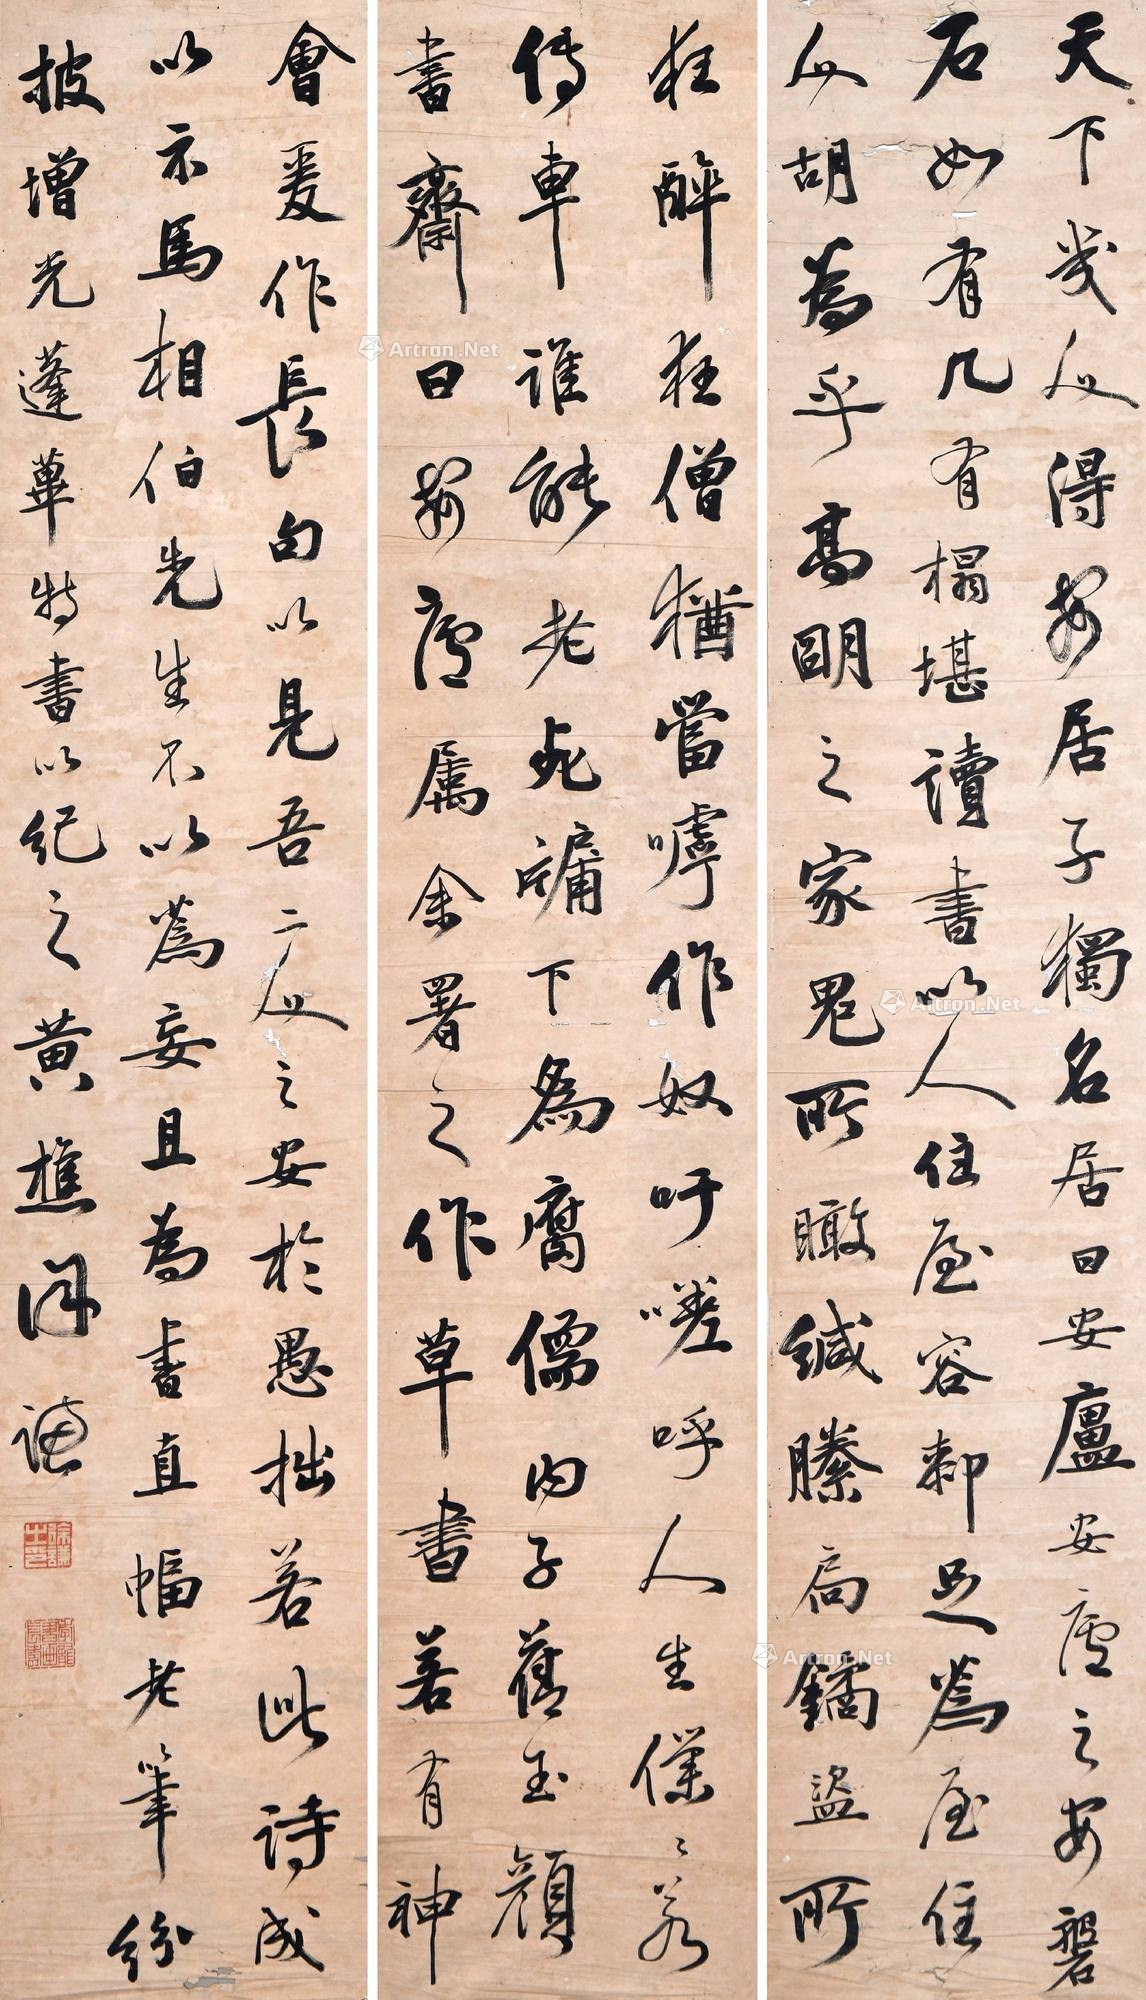 天下幾人得安居子獨名居曰安廬安廬之安磐
石如有几有榻堪讀書以人住屋容卻足為屋住
人胡為乎高明之家鬼所瞰緘縢扃鐍盜所
狂醉狂僧猶當嘑作奴吁嗟呼人生僕僕若
傳車誰能老死牖下為腐儒內子舊玉顏
書齋曰安廬屬余署之作草書若有神
會爰作長句以見吾二人之安於愚拙若此詩成
以示馬相伯先生不以為妄且為書直幅老筆紛
披增光蓬蓽特書以紀之黃樵徐謙
Artron.Net
Artron.Net
Artron.Net